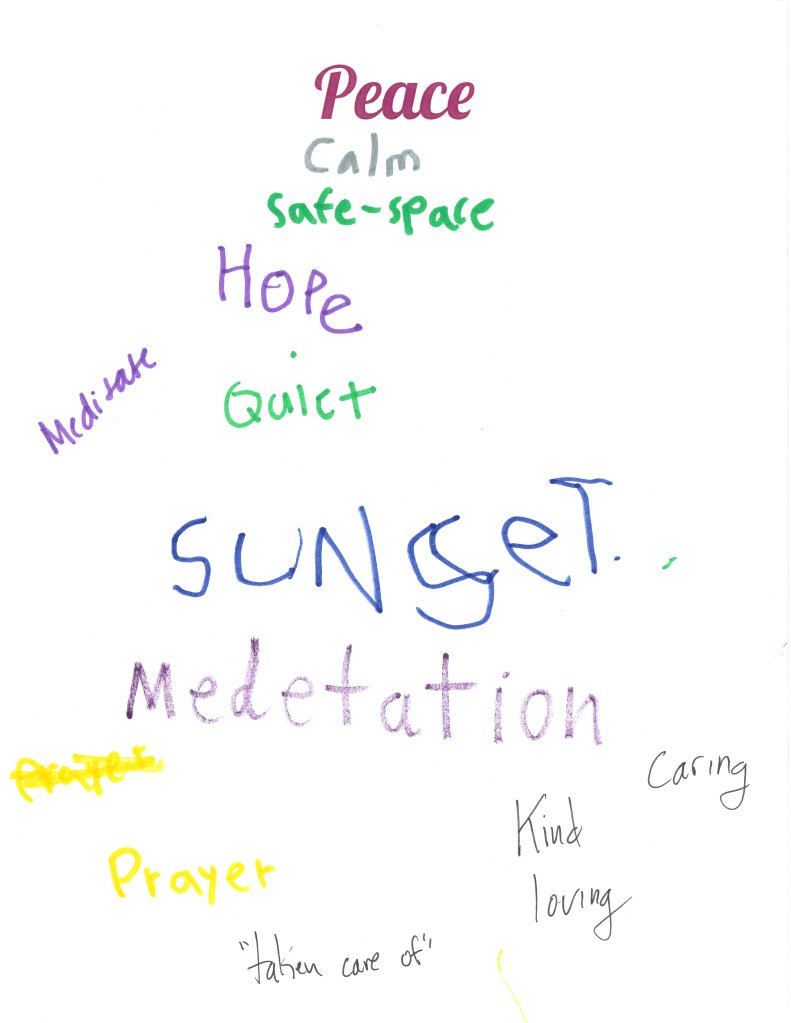 Peace
Calm
safe-space
Hope
Meditate
Quiet
SUNSeT.
Medetation
Prayer
Caring
Kind
Prayer
loving
"taken care of"